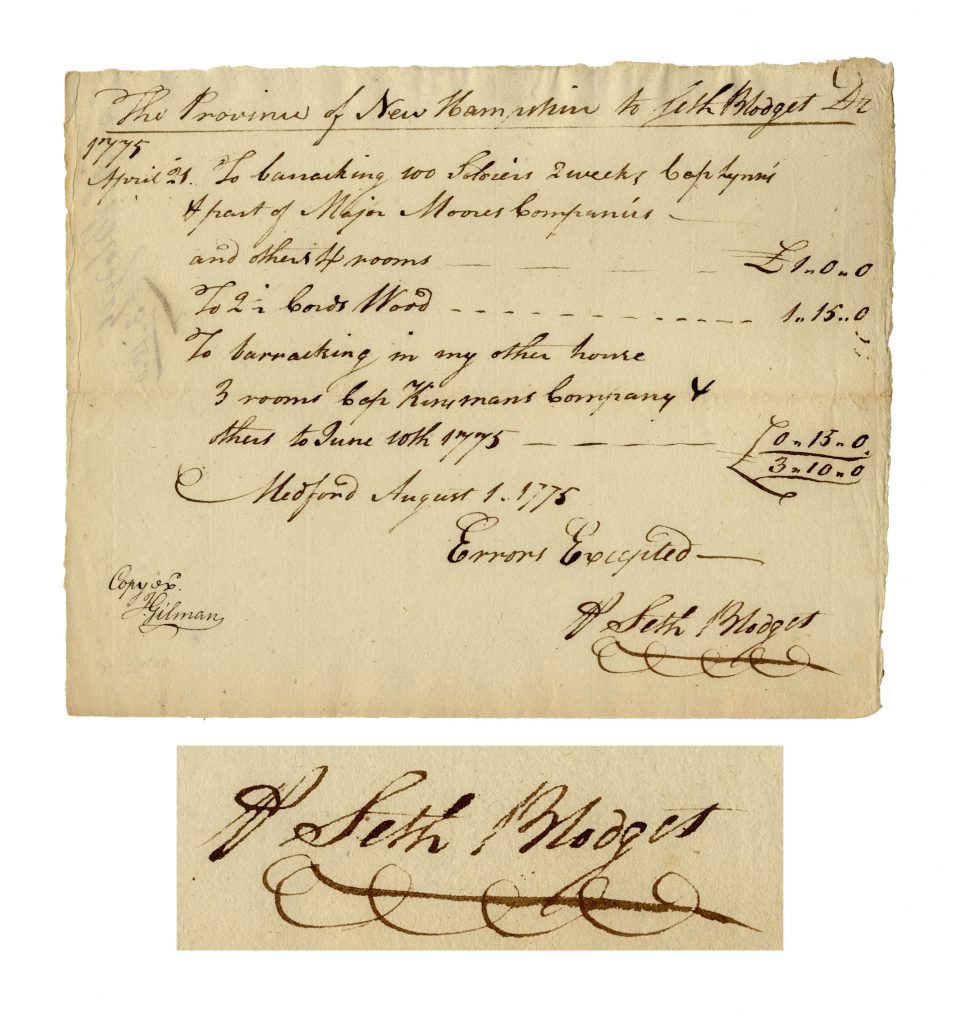 The Province of New Hampshire to Seth Blodget Dr
1775
April 21. To barracking 100 Soldiers 2 weeks Cap
& part of Major Moores Companies —
and others 4 rooms — — — — £1"0"0
To 2½ Cords Wood - - - - - - - - - 1"15"0
To barracking in my other house
3 rooms Cap Kinsmans Company &
others to June 10th 1775 — — — 0"15"0
3"10"0
Medford August 1. 1775
Errors Excepted —
Copy ex.
Gilman
Seth Blodget
Seth Blodget